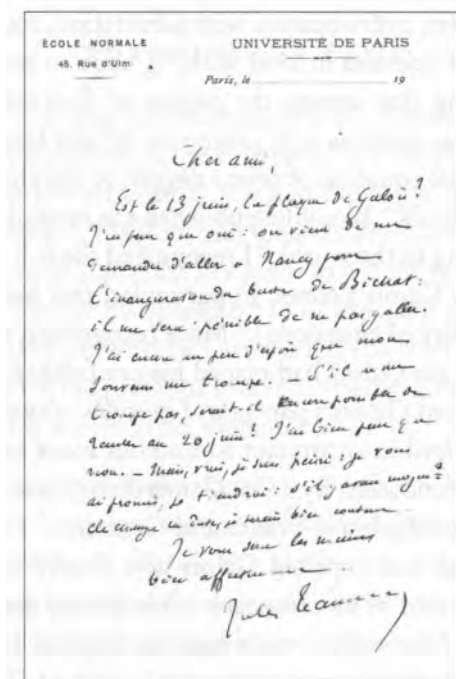 ÉCOLE NORMALE
45, Rue d'Ulm
UNIVERSITÉ DE PARIS
Paris, le 19
Cher ami,
Est-ce le 13 juin, la plaque de Galois?
J'ai peur que oui: on vient de me
demander d'aller à Nancy pour
l'inauguration du buste de Bichat:
il me sera pénible de ne pas y aller.
J'ai encore un peu d'espoir que mon
souvenir me trompe. S'il ne me
trompe pas, serait-il encore possible de
reculer au 20 juin? J'ai bien peur que
non. – Mais, vrai, je suis peiné: je vous
ai promis, je tiendrai: s'il y avait moyen
de changer la date, je serais bien content
Je vous serre les mains
bien affectueusement
Jules Tannery